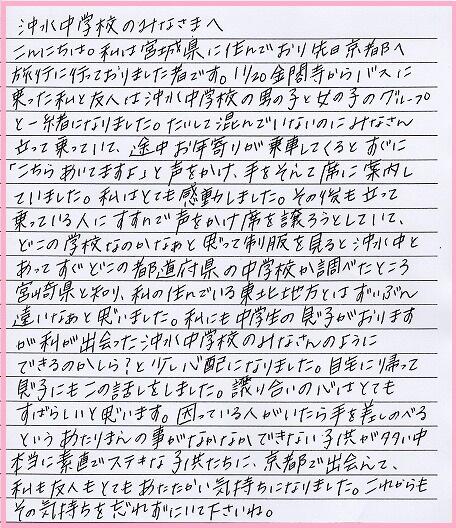 沖水中学校のみなさまへ
こんにちは。私は宮城県に住んでおり先日京都へ
旅行に行っておりました者です。11/20金閣寺からバスに
乗った私と友人は沖水中学校の男の子と女の子のグループ
と一緒になりました。たいして混んでいないのにみなさん
立って乗っていて、途中お年寄りが乗車してくるとすぐに
「こちらあいてますよ」と声をかけ、手をそえて席に案内し
ていました。私はとても感動しました。その後も立って
乗っている人にすすんで声をかけ席を譲ろうとしていて、
どこの学校なのかなぁと思って制服を見ると沖水中と
あってすぐどこの都道府県の中学校か調べたところ
宮崎県と知り、私の住んでいる東北地方とはずいぶん
違いなぁと思いました。私にも中学生の息子がおります
が私が出会った沖水中学校のみなさんのように
できるのかしら?と少し心配になりました。自宅に帰って
息子にもこの話しをしました。譲り合いの心はとても
すばらしいと思います。困っている人がいたら手を差しのべる
というあたりまえの事がなかなかできない子供が多い中
本当に素直でステキな子供たちに、京都で出会えて、
私も友人もとてもあたたかい気持ちになりました。これからも
その気持ちを忘れずにいて下さいね。